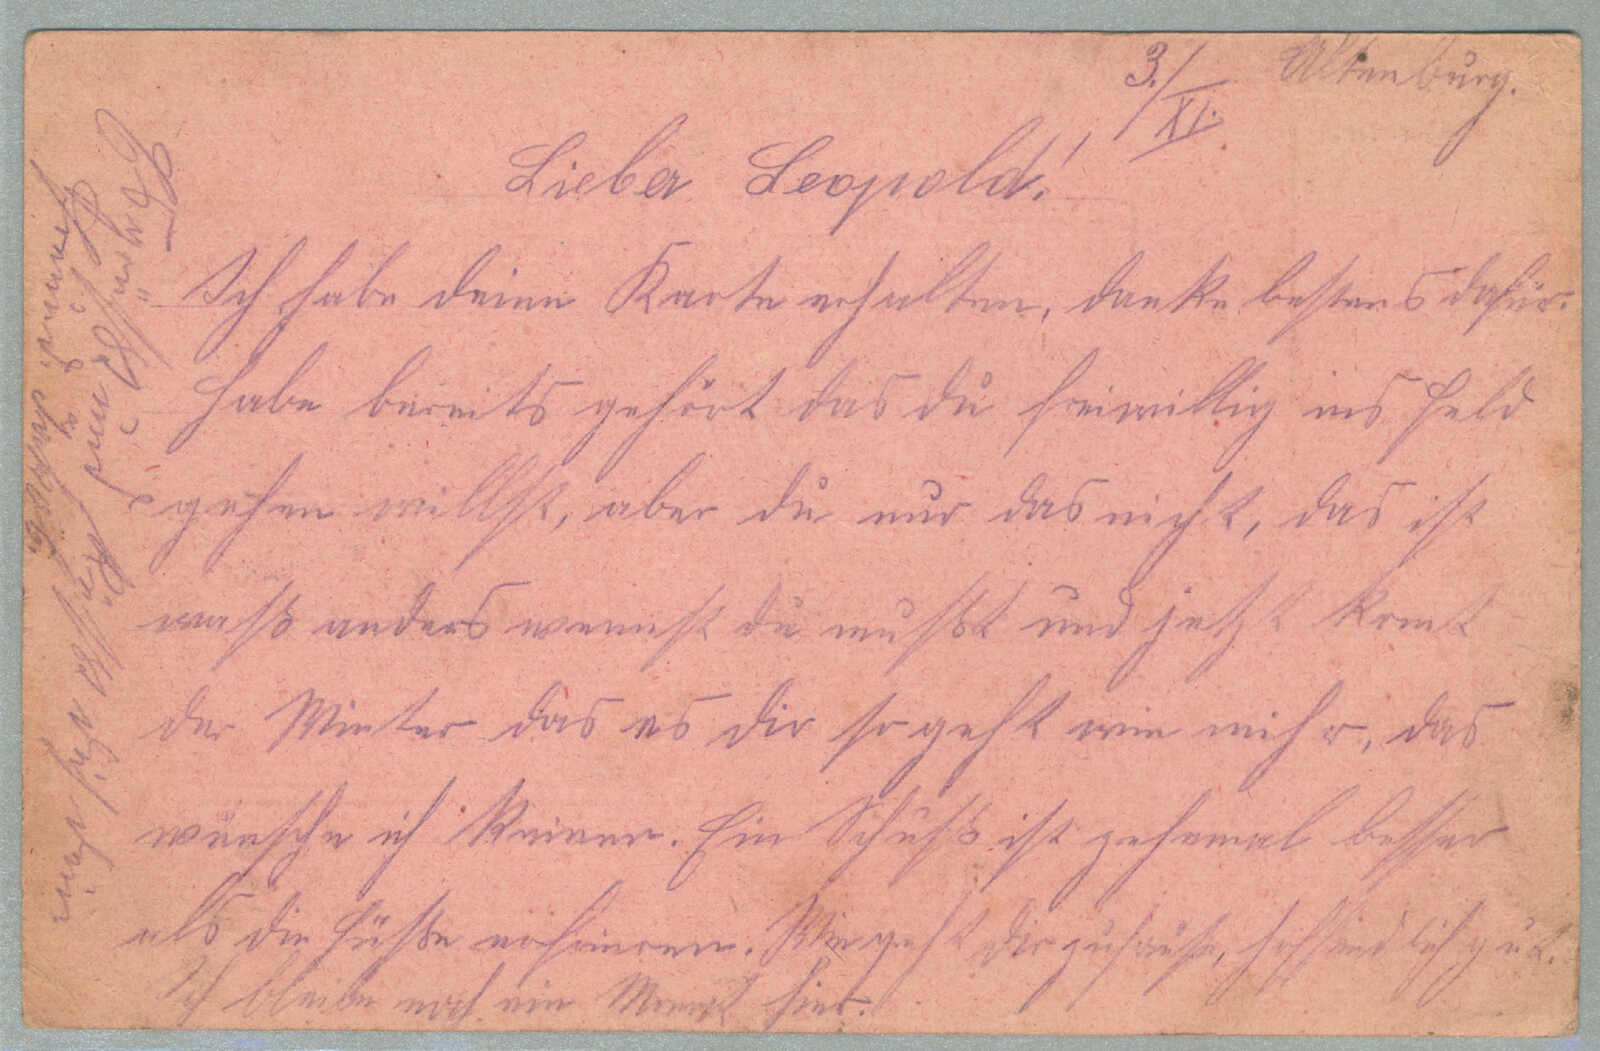 3./XI. Altenburg.
Lieber Leopold!
Ich habe deine Karte erhalten, danke bestens dafür.
Habe bereits gehört das du freiwillig ins Feld
gehen willst, aber du nur das nicht, das ist
waß anders wennst du mußt und jetzt komt
der Winter das es dir so geht wie mihr, das
wünsche ich keinen. Ein Schuß ist zehnmal besser
als die Füße erfrieren. Wie geht dir zuhause, hoffendlich gut.
Ich bleibe noch ein Monat hier.
Es grüßt und küßt dich dein